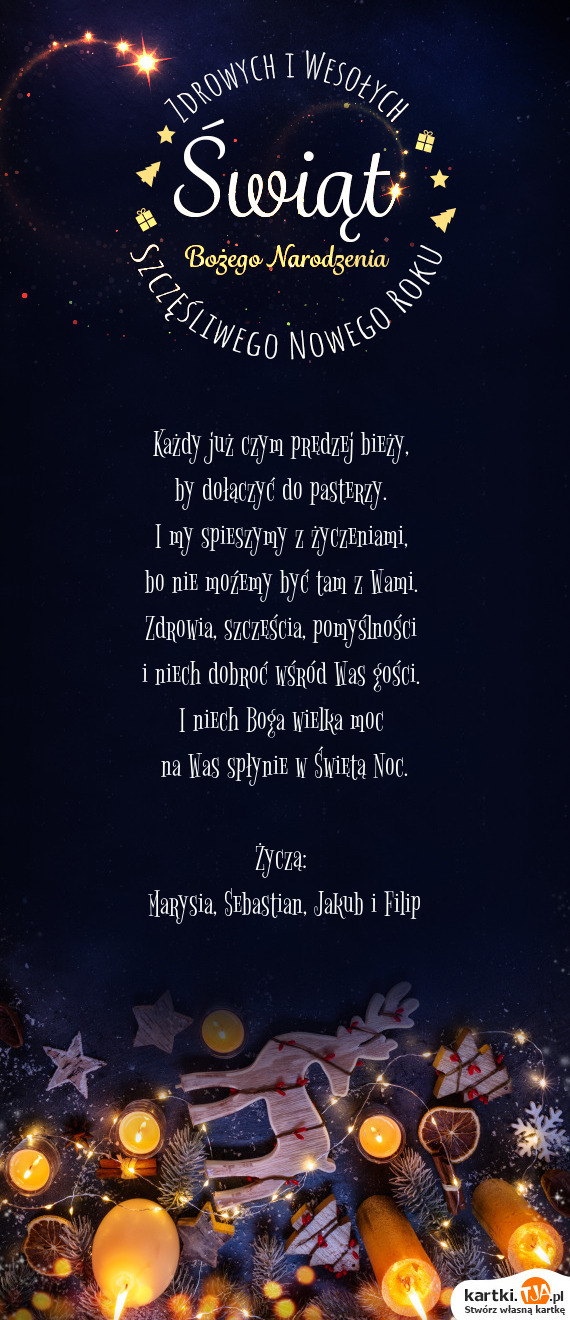 Zdrowych i Wesołych
Świąt
Bożego Narodzenia
Szczęśliwego Nowego Roku
Każdy już czym prędzej bieży,
by dołączyć do pasterzy.
I my spieszymy z życzeniami,
bo nie możemy być tam z Wami.
Zdrowia, szczęścia, pomyślności
i niech dobroć wśród Was gości.
I niech Boga wielka moc
na Was spłynie w Świętą Noc.
Życzą:
Marysia, Sebastian, Jakub i Filip
kartki.TJA.pl
Stwórz własną kartkę